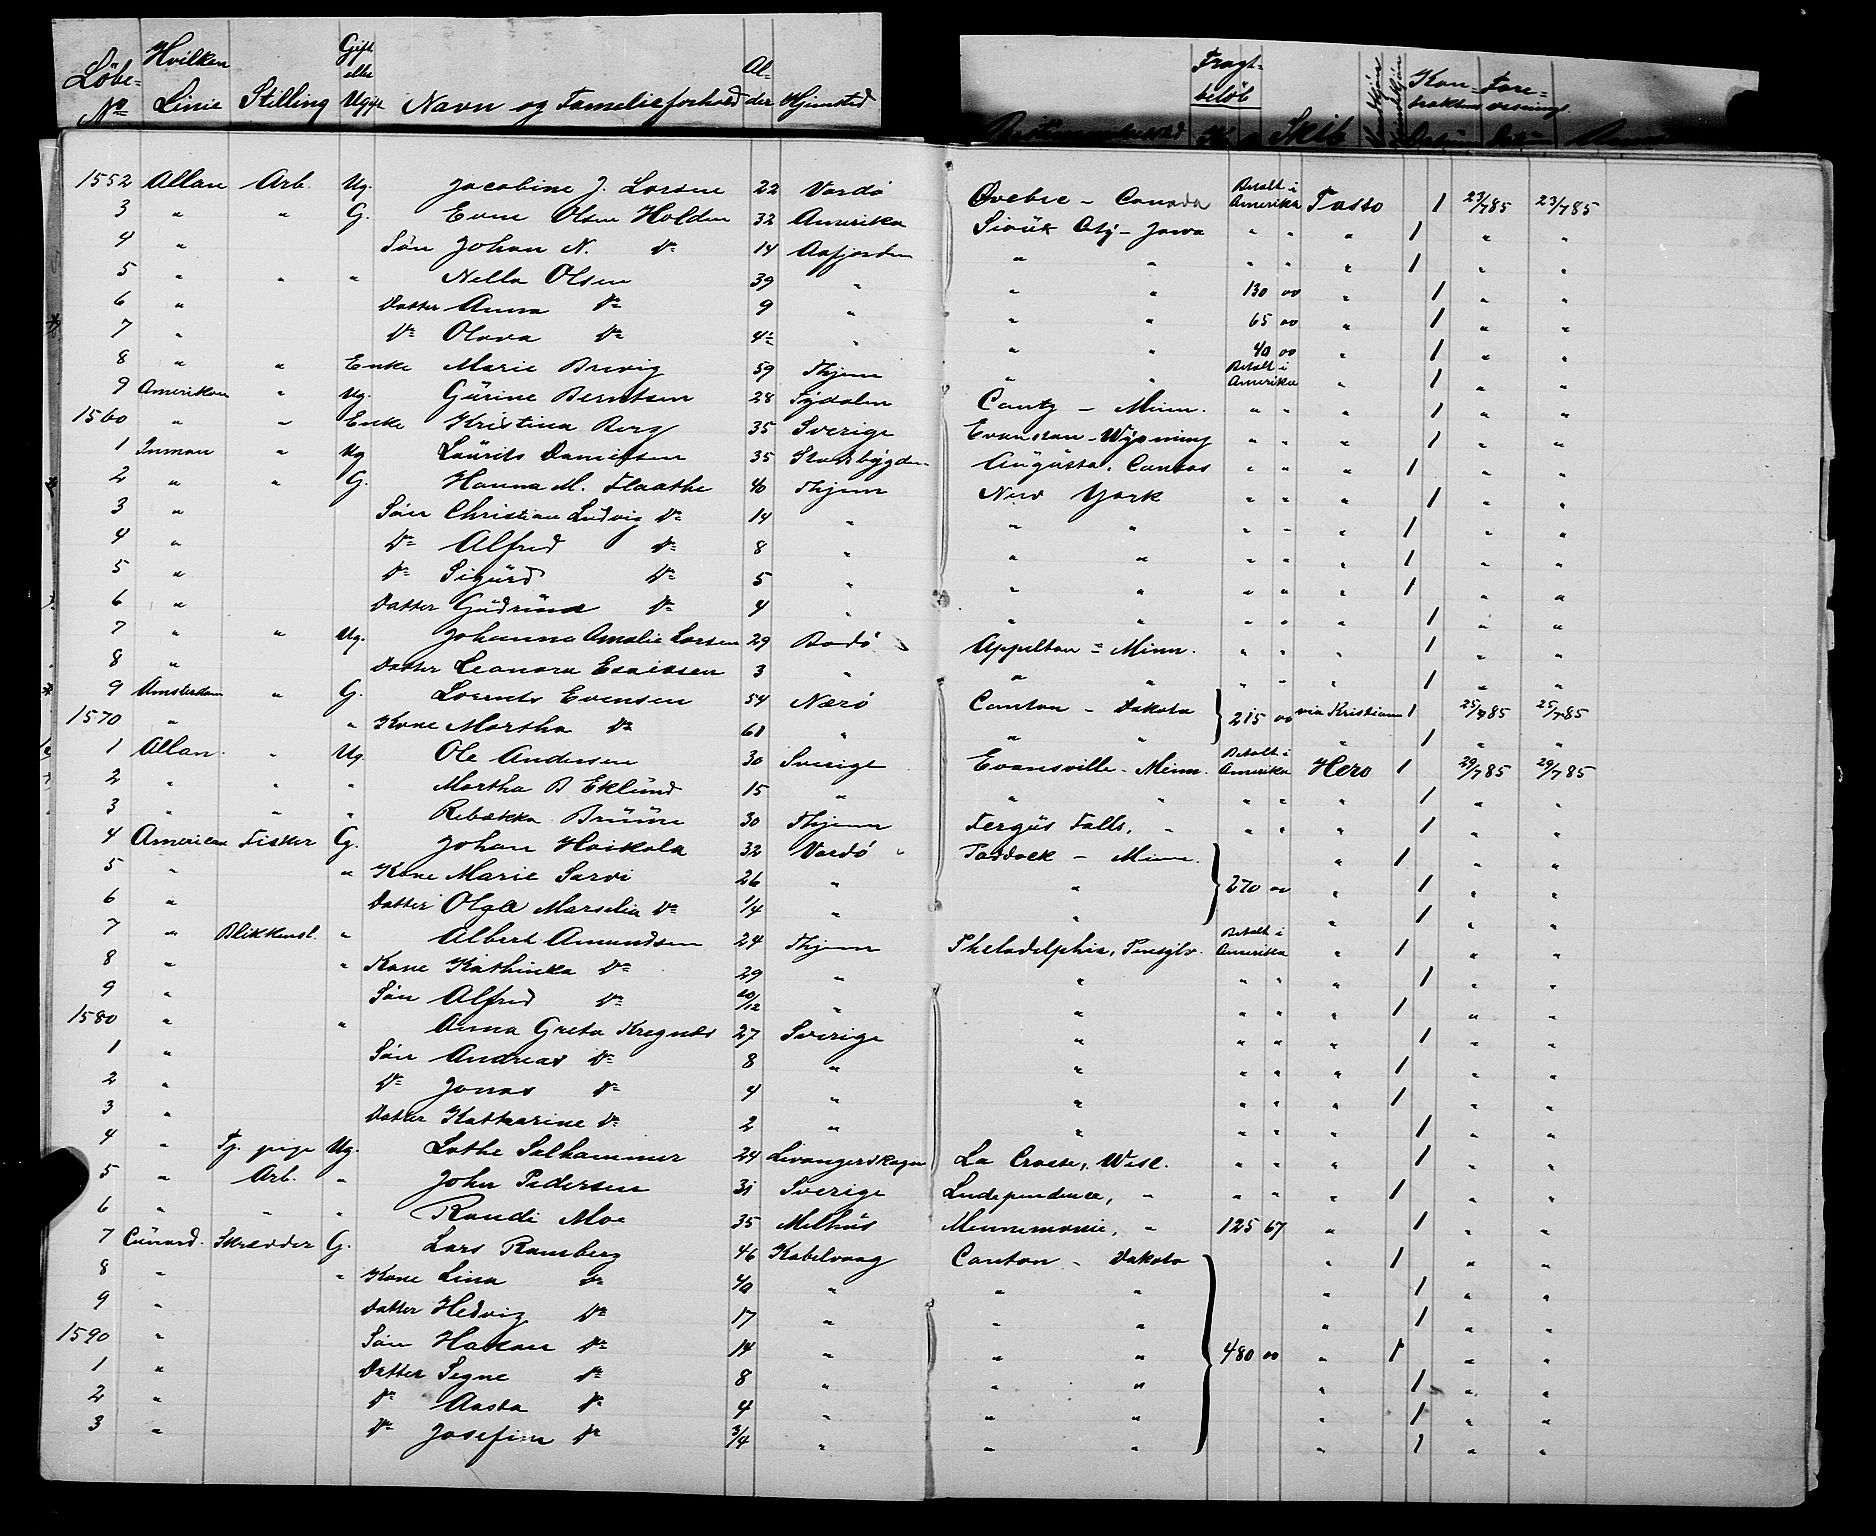 Löbe-No Hvilken Linie Stilling Gift eller Ugift Navn og Familieforhold Alder Hjemsted Bestemmelsessted Fragtbelöb K. ø Skib Mandkjön Kvindekjön Kontraktens Datum Forevisnings Datum
1552 Allan Arb. Ug. Jacobine J. Larsen 22 Vardö Qvebec - Canada Betalt i Amerika Tasso 1 23/785 23/785
3 " " G. Even Olsen Holden 32 Amerika Sioux City - Jowa " " " 1 " "
4 " Sön Johan N. Do 14 Aafjorden " " " " " 1 " "
5 " " " Nella Olsen 39 " " " 130 00 " 1 " "
6 " Datter Anna Do 9 " " " 65 00 " 1 " "
7 " Do Olava Do 4½ " " " 40 00 " 1 " "
8 " " Enke Marie Brevig 59 Thjem " " Betalt i Amerika " 1 " "
9 Amerikan " Ug. Gürine Berntsen 28 Tydalen Canty - Minn. " " " 1 " "
1560 " " Enke Kristina Berg 35 Sverige Evanstan - Wyoming " " " 1 " "
1 Inman " Ug Laürits Danielsen 35 Stadsbygden Aügüsta, Cansas " " " 1 " "
2 " " G. Hanna M. Flaathe 40 Thjem New York " " " 1 " "
3 " Sön Christian Ludvig Do 14 " " " " " " 1 " "
4 " Do Alfred Do 8 " " " " " " 1 " "
5 " Do Sigürd Do 5 " " " " " " 1 " "
6 " Datter Güdrün Do 4 " " " " " " 1 " "
7 " " Ug. Johanna Amalie Larsen 29 Bodö Appelton = Minn. " " " 1 " "
8 " Datter Leonora Esaissen 3 " " " " " " 1 " "
9 Amsterdam " G. Lorents Evensen 54 Nærö Canton - Dakota } 215 00 via Kristiania 1 25/785 25/785
1570 " " Kone Martha Do 61 " " " " 1 " "
1 Allan " Ug. Ole Andersen 30 Sverige Evansville - Minn. Betalt i Amerika Hero 1 29/785 29/785
2 " " " Martha B Eklünd 15 " " " " " " 1 " "
3 " " " Rebækka Brüün 30 Thjem Fergüs Falls, " " " " 1 " "
4 American Fisker G. Johan Haikola 32 Vardö Paddock - Minn. } " 1 " "
5 " " Kone Marie Sarvi 26 " " 270 00 " 1 " "
6 " Datter Olga Marselia Do 1/4 " " " 1 " "
7 " Blikkensl. " Albert Amundsen 24 Thjem Pheladelphia, Pensylv. Betalt i Amerika " 1 " "
8 " " Kone Kathinka Do 29 " " " " " 1 " "
9 " Sön Alfred Do 10/12 " " " " " 1 " "
1580 " " Anna Greta Kregnes 27 Sverige " " " " 1 " "
1 " Sön Andreas Do 8 " " " " " 1 " "
2 " Do Jonas Do 4 " " " " " 1 " "
3 " Datter Katharine Do 2 " " " " " 1 " "
4 " Tj. pige Ug. Lothe Salhammer 24 Levangerskogn La Crosse, Wisc. " " " 1 " "
5 " Arb. " John Pedersen 31 Sverige Independence, " " " " 1 " "
6 " " " Randi Moe 35 Melhüs Mennemonie, " 125 67 " 1 " "
7 Cünard. Skrædder G. Lars Ramberg 46 Kabelvaag Canton - Dakota } " 1 " "
8 " " Kone Lina Do 40 " " " " 1 " "
9 " Datter Hedvig Do 17 " " " " 1 " "
1590 " Sön Hakon Do 14 " " " 480 00 " 1 " "
1 " Datter Segne Do 8 " " " " 1 " "
2 " Do Aasta Do 4 " " " " 1 " "
3 " Do Josefine Do 3/4 " " " " 1 " "